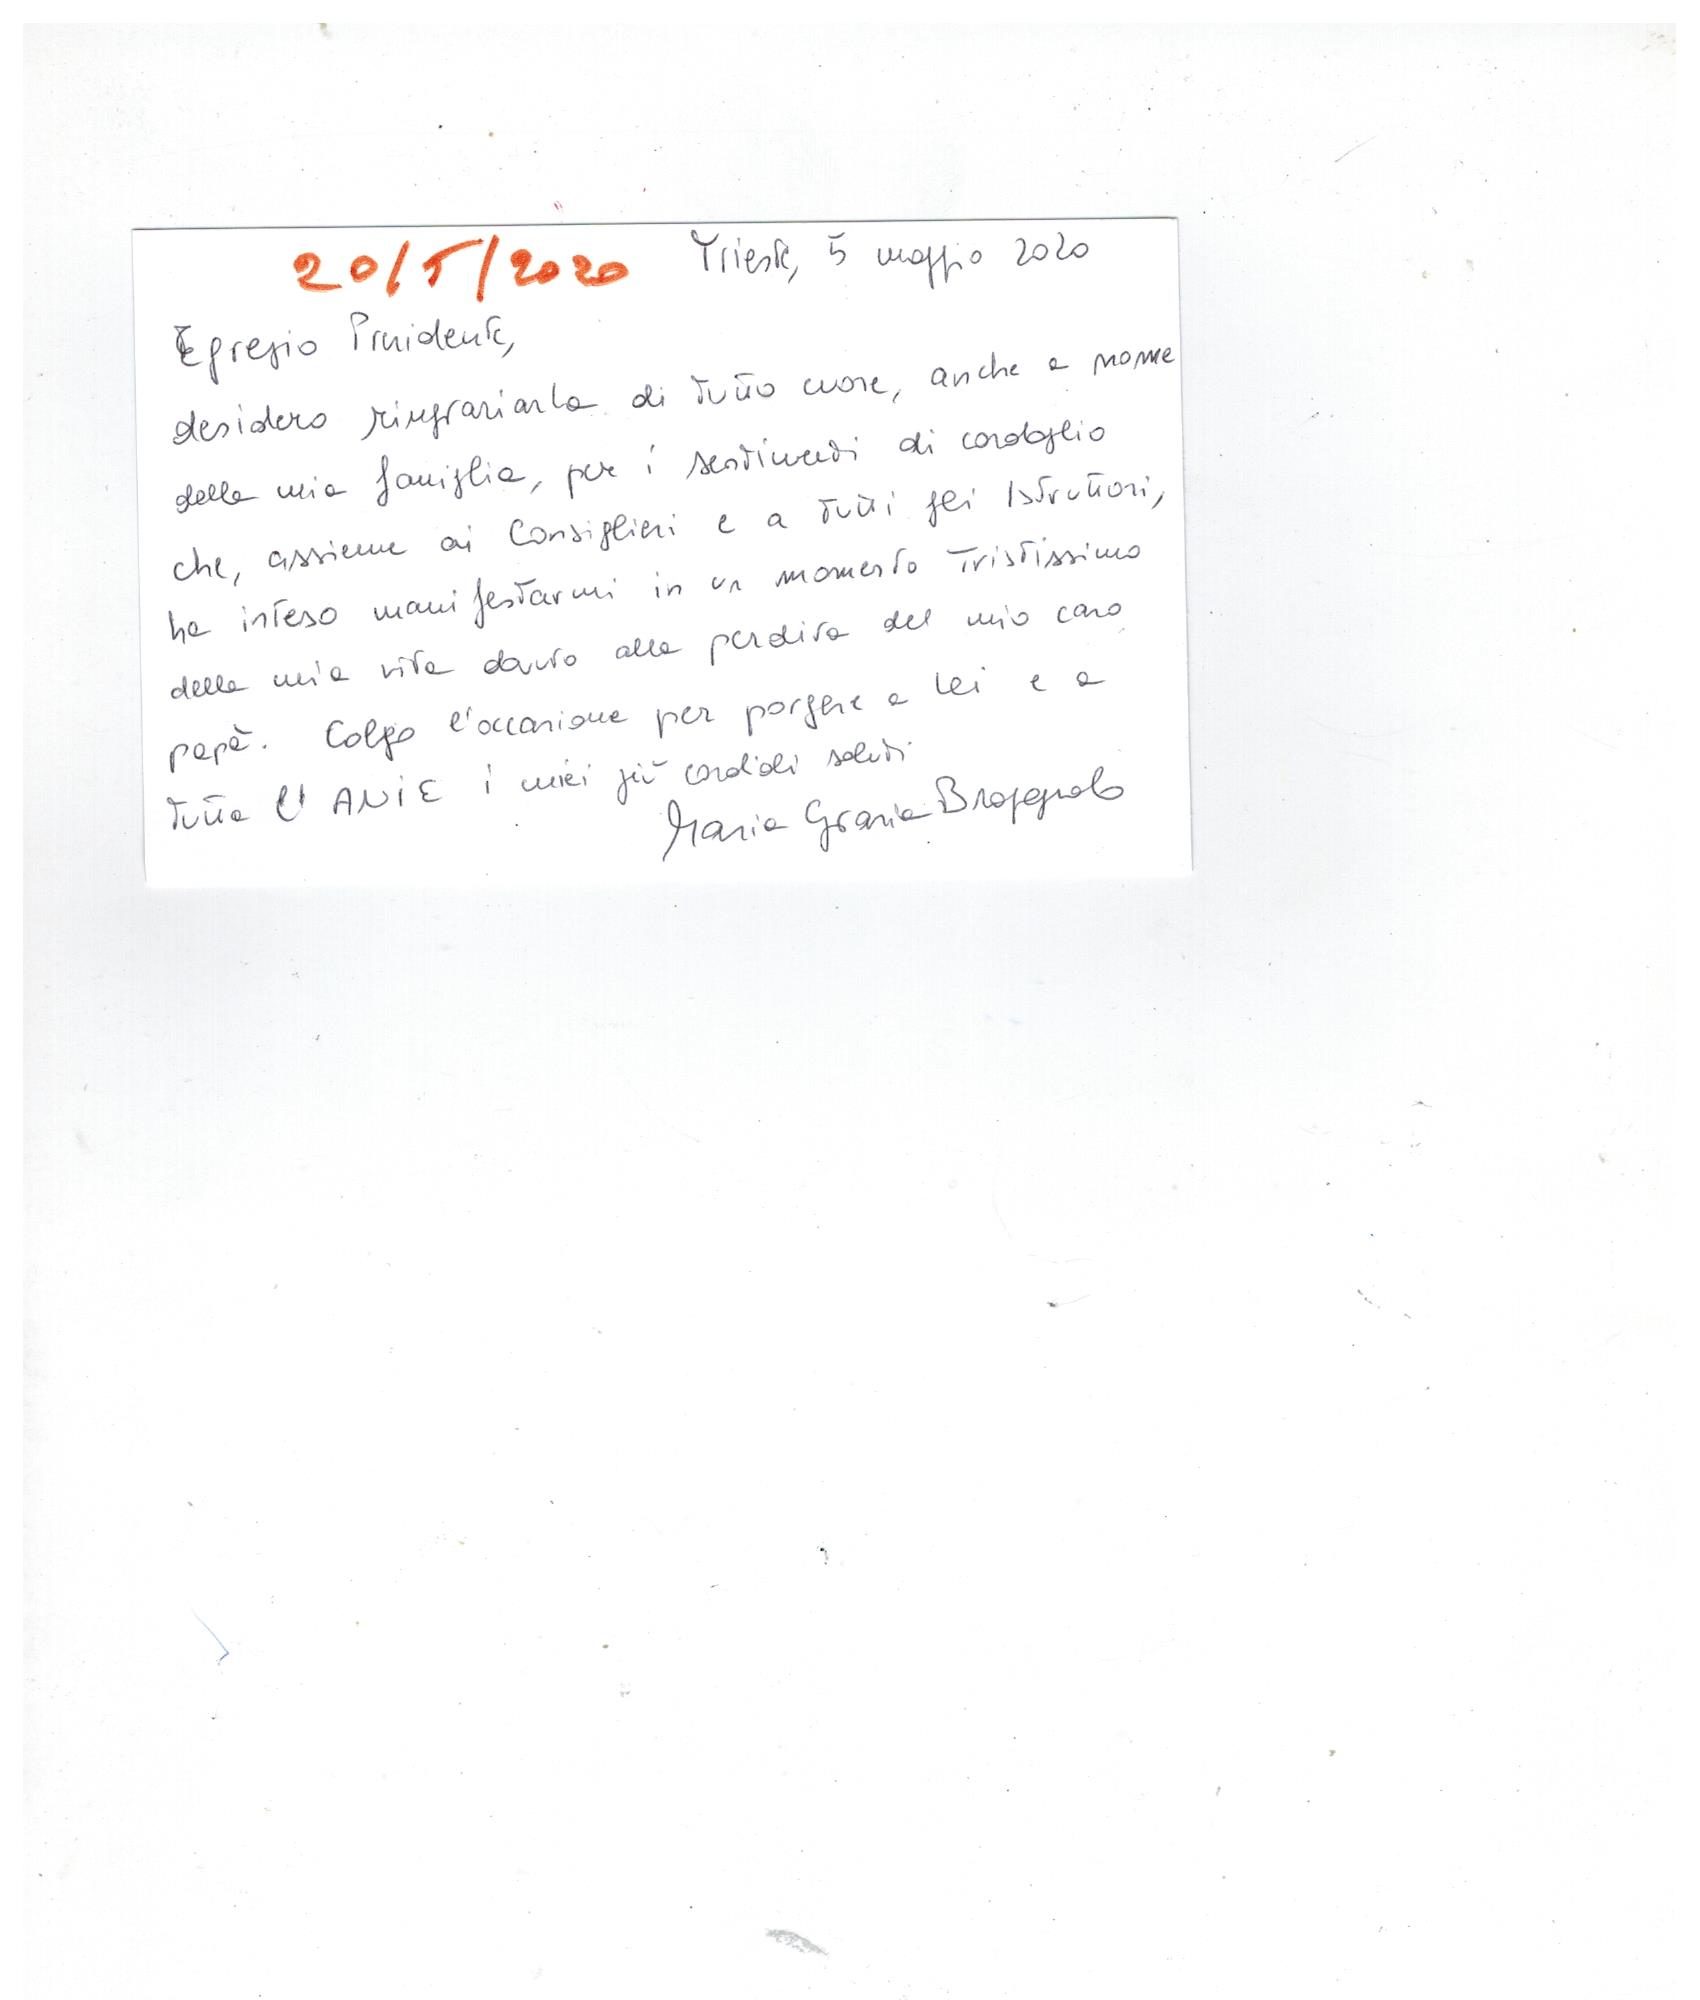 20/5/2020 Trieste, 5 maggio 2020
Egregio Presidente,
desidero ringraziarla di tutto cuore, anche a nome
della mia famiglia, per i sentimenti di cordoglio
che, assieme ai Consiglieri e a tutti gli Istruttori,
ha inteso manifestarmi in un momento tristissimo
della mia vita dovuto alla perdita del mio caro
papà. Colgo l'occasione per porgere a Lei e a
tutta l'ANIE i miei più cordiali saluti
Maria Grazia